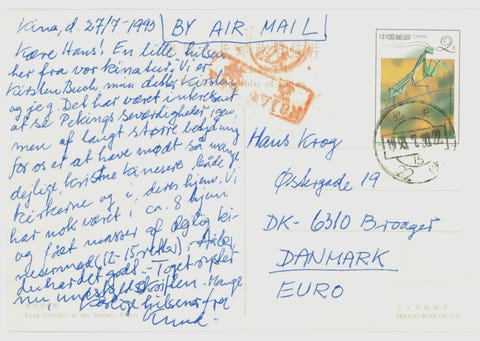 Kina, d. 27/7-1993
BY AIR MAIL
Kære Hans! En lille hilsen
her fra vor kinatur. Vi er
Kirsten Buch, min datter Kirsten
og jeg. Det har været interessant
at se Pekings seværdigheder igen,
men af langt større betydning
for os er at have mødt så mange
dejlige, kristne kinesere, både i
kirkerne og i deres hjem. Vi
har nok været i ca. 8 hjem
og fået masser af dejlig ki-
nesermad (12-15 retter). Håber,
du har det godt. - Toget ryster
nu
Kærlige hilsner fra
Knud.
中国邮政 CHINA
Hans Krog
Øsbergade 19
DK-6310 Broager
DANMARK
EURO
Long Corridor at the Summer Palace
PEKING POST OFFICE